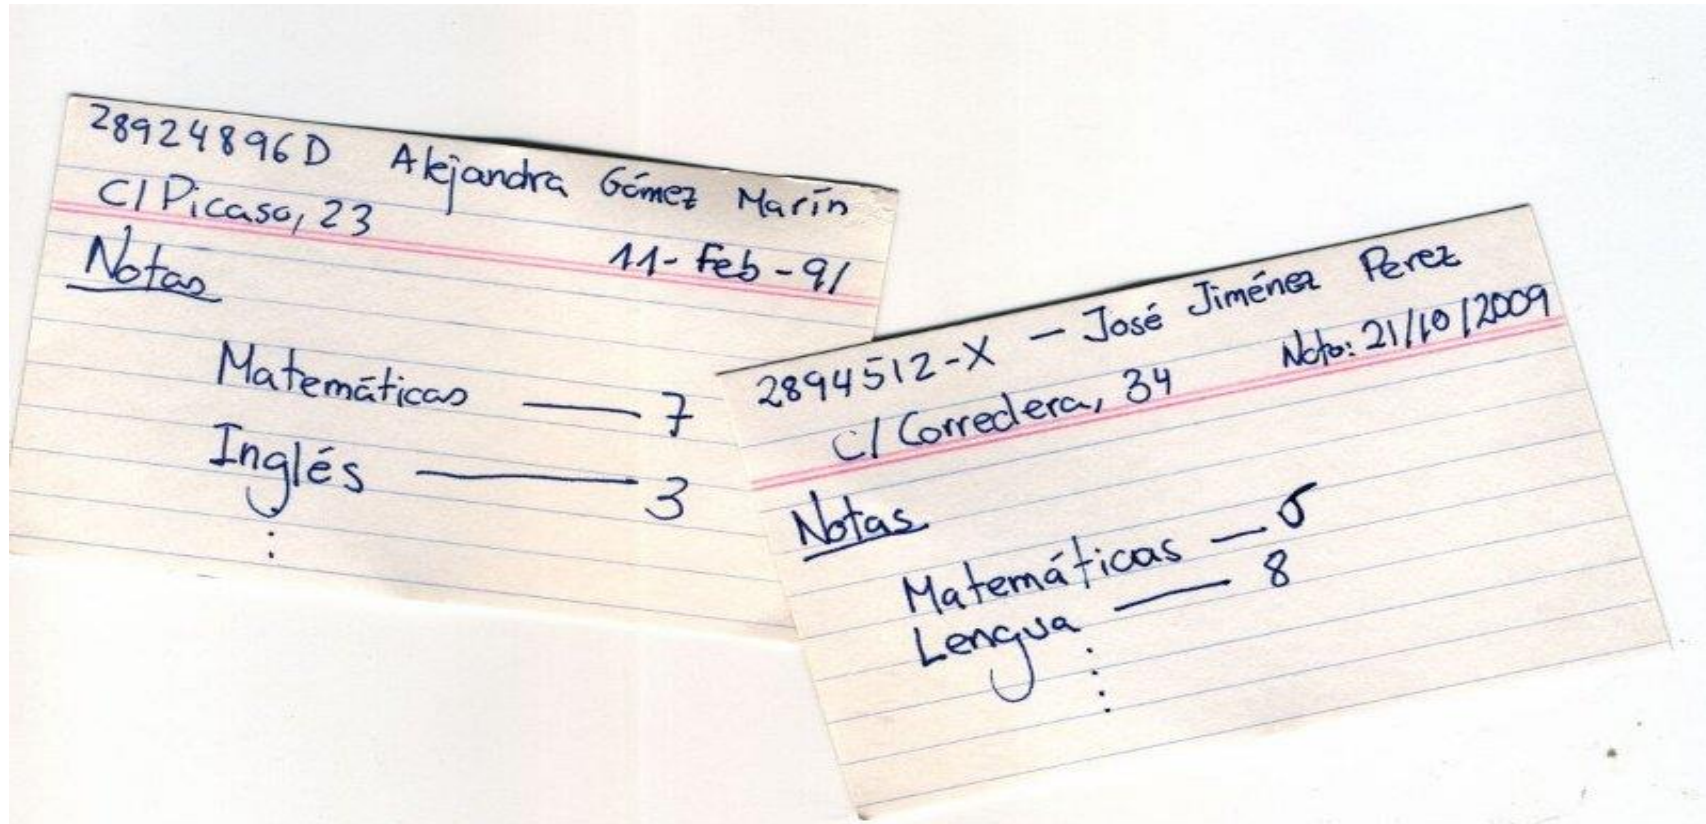 28924896D Alejandra Gómez Marín
C/ Picaso, 23
11-Feb-91
Notas
Matemáticas — 7
Inglés — 3
:
2894512-X — José Jiménez Perez
C/ Corredera, 34 Nto: 21/10/2009
Notas
Matemáticas — 5
Lengua — 8
⋮